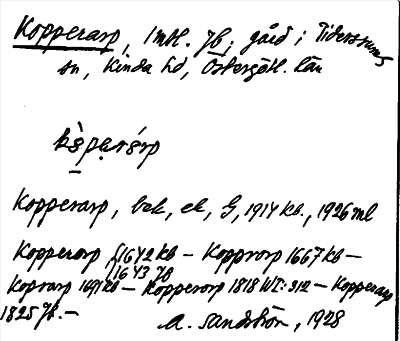 Kopperarp, 1 mtl. jb, gård i Tidersrums
sn, Kinda hd, Östergötl. län
Kopperarp, bek, ek, G, 1914 kb., 1926 ml
Kopperorp 1642 kb — Kopprorp 1667 kb —
1643 jb
Koprarp 1691 kb — Kopperorp 1818 WT: 312 — Kopperarp
1825 jb. —
A. Sandström, 1928